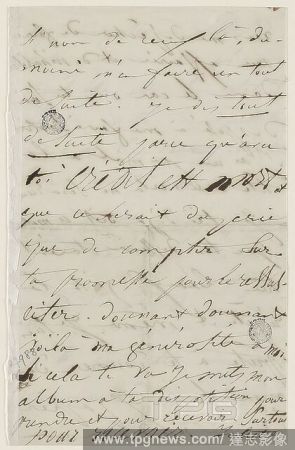 sinon de ceux là, du
moins m'en faire un tout
de suite. je dis tout
de suite parce qu'avec
toi Crédit est mort et
que ce serait duperie
que de compter sur
ta promesse pour le ressus
citer. donnant donnant
voilà ma générosité à moi
si cela te va je mets mon
album à ta disposition pour
rendre et pour recevoir surtout
pour
www.tpgnews.com / 達志影像